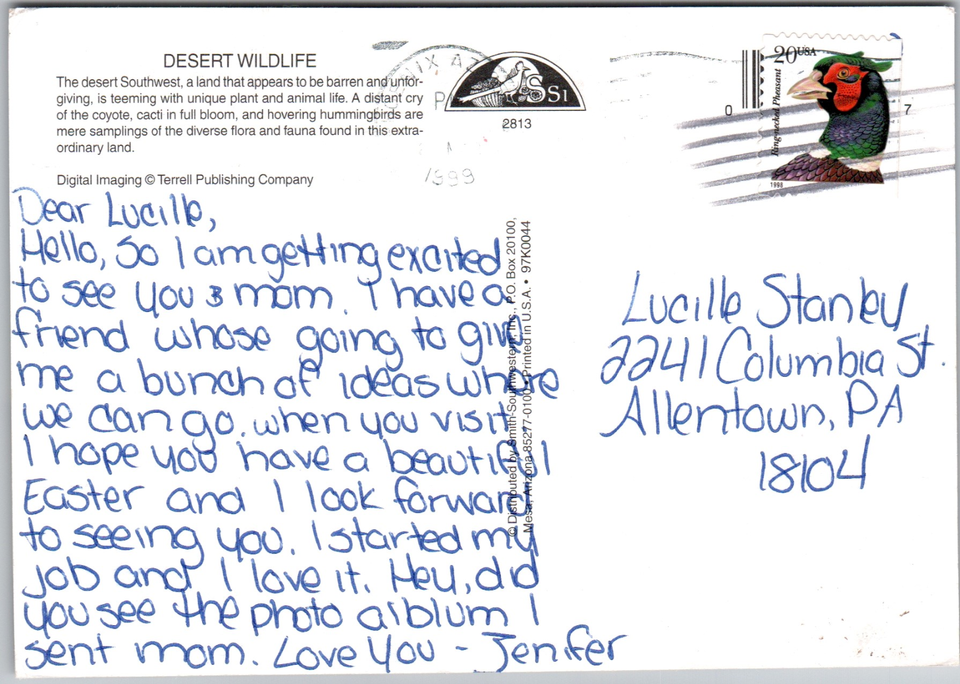 DESERT WILDLIFE
The desert Southwest, a land that appears to be barren and unfor-
giving, is teeming with unique plant and animal life. A distant cry
of the coyote, cacti in full bloom, and hovering hummingbirds are
mere samplings of the diverse flora and fauna found in this extra-
ordinary land.
Digital Imaging © Terrell Publishing Company
SS1
2813
1999
20USA
Ring-necked Pheasant
1998
0 7
Dear Lucille,
Hello, So I am getting excited
to see you & mom. I have a
friend whose going to give
me a bunch of ideas where
we can go. when you visit.
I hope you have a beautiful
Easter and I look forward
to seeing you. I started my
job and I love it. Hey, did
you see the photo alblum I
sent mom. Love You - Jenifer
© Distributed by Smith-Southwestern, Inc., P.O. Box 20100,
Mesa, Arizona 85277-0100 • Printed in U.S.A. • 97K0044
Lucille Stanley
2241 Columbia St.
Allentown, PA
18104